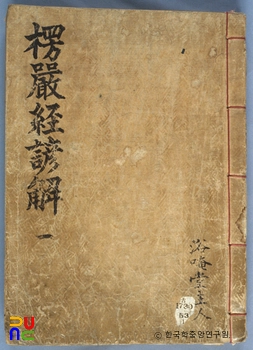 楞嚴經諺解
一
浴唵堂主人
A
1730
53
ⓒ 한국학중앙연구원